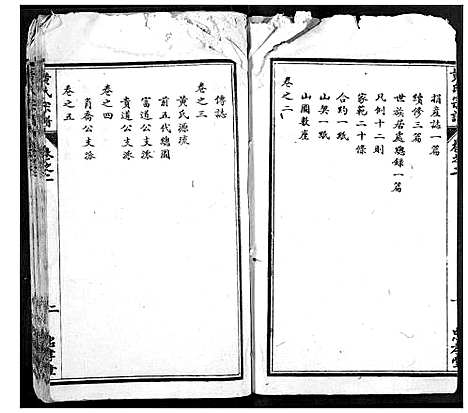 捐産誌一篇
續修三篇
世族居處總錄一篇
凡例十二則
家範二十條
合約一紙
山契一紙
卷之二
山圖數座
傳誌
卷之三
黃氏源㳅
前五代總圖
富道公支派
貴道公支派
卷之四
肖齋公支派
卷之五
黃氏宗譜
卷之一